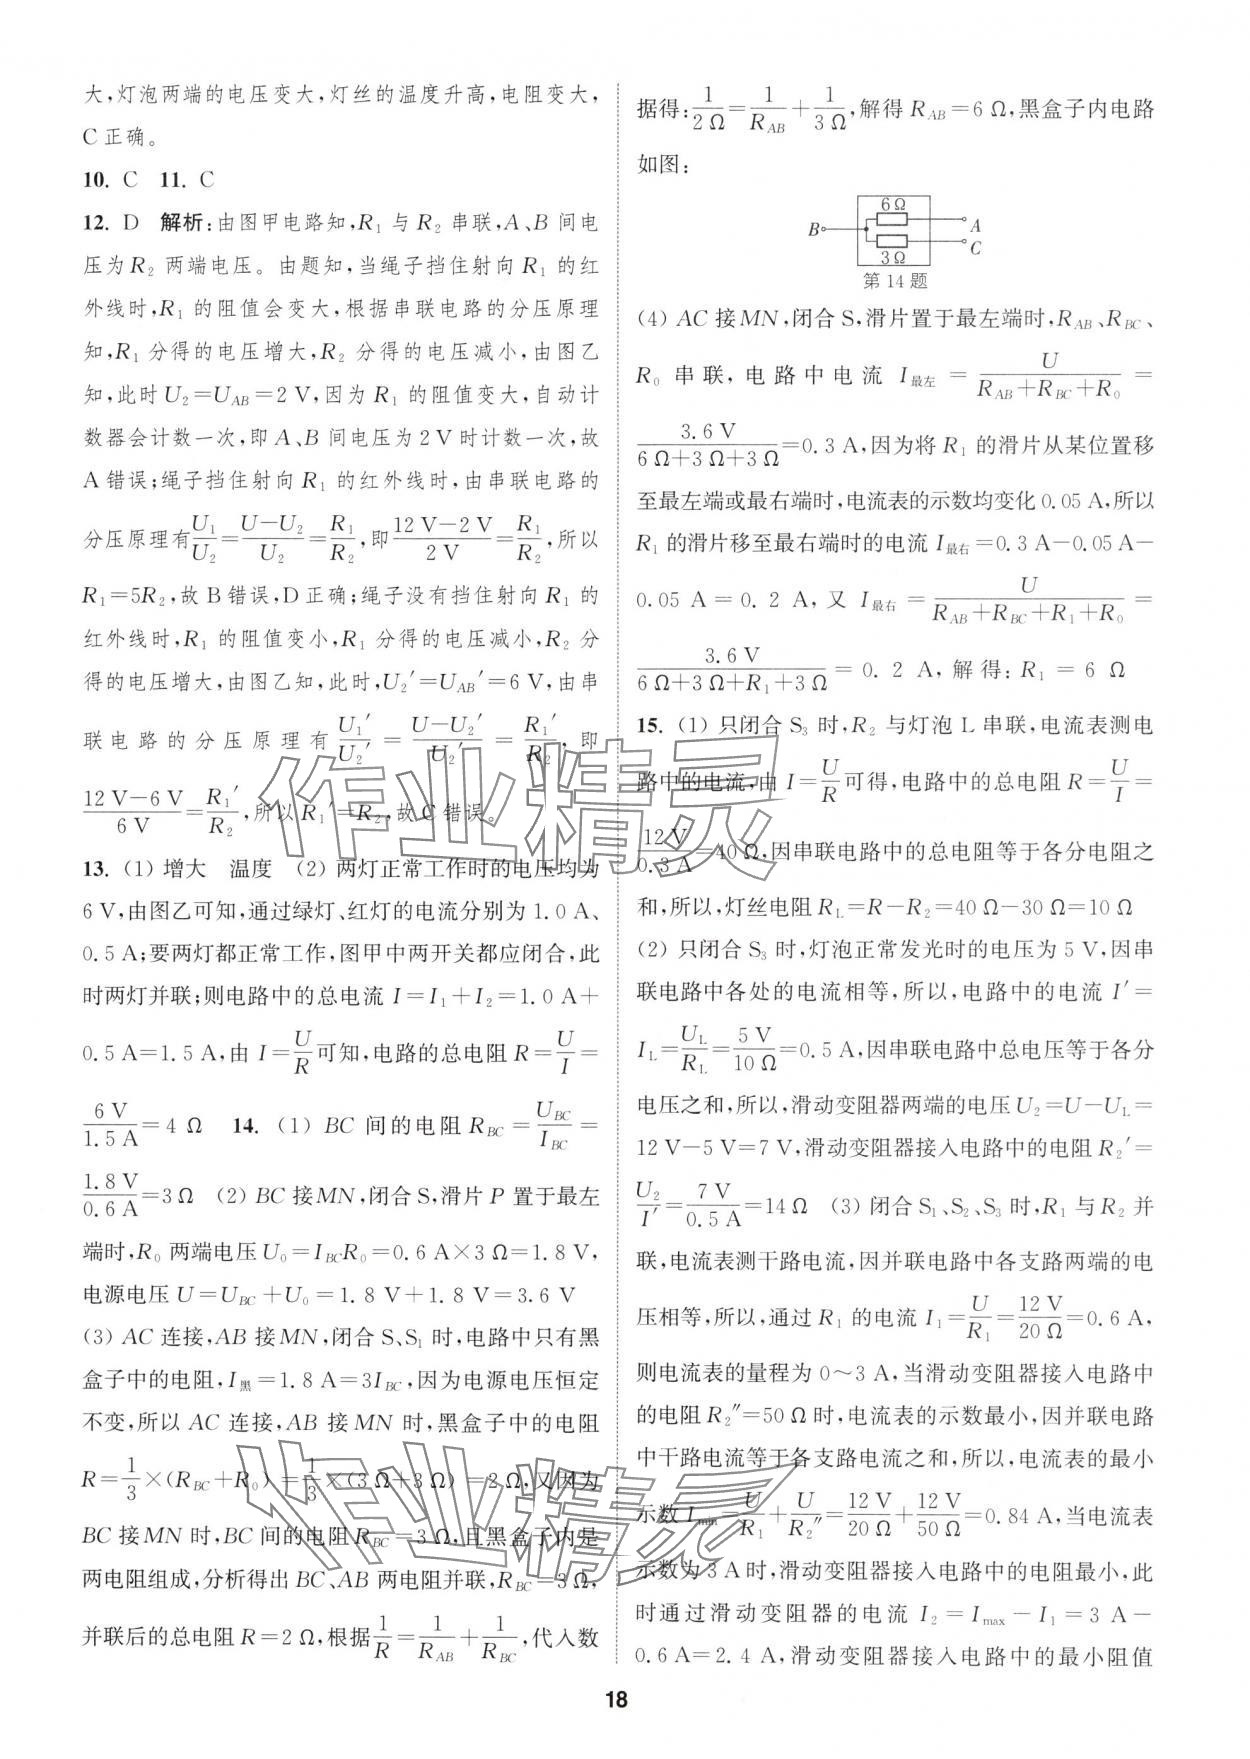 大,灯泡两端的电压变大,灯丝的温度升高,电阻变大,
C 正确。
10. C 11. C
12. D 解析:由图甲电路知,R₁ 与 R₂ 串联,A、B 间电
压为 R₂ 两端电压。由题知,当绳子挡住射向 R₁ 的红
外线时,R₁ 的阻值会变大,根据串联电路的分压原理
知,R₁ 分得的电压增大,R₂ 分得的电压减小,由图乙
知,此时 U₂=U_AB=2 V,因为 R₁ 的阻值变大,自动计
数器会计数一次,即 A、B 间电压为 2 V 时计数一次,故
A 错误;绳子挡住射向 R₁ 的红外线时,由串联电路的
分压原理有 U₁/U₂=(U-U₂)/U₂=R₁/R₂,即 (12 V-2 V)/2 V=R₁/R₂,所以
R₁=5R₂,故 B 错误,D 正确;绳子没有挡住射向 R₁ 的
红外线时,R₁ 的阻值变小,R₁ 分得的电压减小,R₂ 分
得的电压增大,由图乙知,此时,U₂′=U_AB′=6 V,由串
联电路的分压原理有 U₁′/U₂′=(U-U₂′)/U₂′=R₁′/R₂,即
(12 V-6 V)/6 V=R₁′/R₂,所以 R₁′=R₂,故 C 错误。
13. (1) 增大 温度 (2) 两灯正常工作时的电压均为
6 V,由图乙可知,通过绿灯、红灯的电流分别为 1.0 A、
0.5 A;要两灯都正常工作,图甲中两开关都应闭合,此
时两灯并联;则电路中的总电流 I=I₁+I₂=1.0 A+
0.5 A=1.5 A,由 I=U/R 可知,电路的总电阻 R=U/I=
6 V/1.5 A=4 Ω 14. (1) BC 间的电阻 R_BC=U_BC/I_BC=
1.8 V/0.6 A=3 Ω (2) BC 接 MN,闭合 S,滑片 P 置于最左
端时,R₀ 两端电压 U₀=I_BC R₀=0.6 A×3 Ω=1.8 V,
电源电压 U=U_BC+U₀=1.8 V+1.8 V=3.6 V
(3) AC 连接,AB 接 MN,闭合 S、S₁ 时,电路中只有黑
盒子中的电阻,I黑=1.8 A=3I_BC,因为电源电压恒定
不变,所以 AC 连接,AB 接 MN 时,黑盒子中的电阻
R=1/3×(R_BC+R₀)=1/3×(3 Ω+3 Ω)=2 Ω,又因为
BC 接 MN 时,BC 间的电阻 R_BC=3 Ω,且黑盒子内是
两电阻组成,分析得出 BC、AB 两电阻并联,R_BC=3 Ω,
并联后的总电阻 R=2 Ω,根据 1/R=1/R_AB+1/R_BC,代入数
据得:1/2 Ω=1/R_AB+1/3 Ω,解得 R_AB=6 Ω,黑盒子内电路
如图:
6 Ω
B A
C
3 Ω
第 14 题
(4) AC 接 MN,闭合 S,滑片置于最左端时,R_AB、R_BC、
R₀ 串联,电路中电流 I最左=U/(R_AB+R_BC+R₀)=
3.6 V/(6 Ω+3 Ω+3 Ω)=0.3 A,因为将 R₁ 的滑片从某位置移
至最左端或最右端时,电流表的示数均变化 0.05 A,所以
R₁ 的滑片移至最右端时的电流 I最右=0.3 A-0.05 A-
0.05 A=0.2 A,又 I最右=U/(R_AB+R_BC+R₁+R₀)=
3.6 V/(6 Ω+3 Ω+R₁+3 Ω)=0.2 A,解得:R₁=6 Ω
15. (1) 只闭合 S₃ 时,R₂ 与灯泡 L 串联,电流表测电
路中的电流,由 I=U/R 可得,电路中的总电阻 R=U/I=
12 V/0.3 A=40 Ω,因串联电路中的总电阻等于各分电阻之
和,所以,灯丝电阻 R_L=R-R₂=40 Ω-30 Ω=10 Ω
(2) 只闭合 S₃ 时,灯泡正常发光时的电压为 5 V,因串
联电路中各处的电流相等,所以,电路中的电流 I′=
I_L=U_L/R_L=5 V/10 Ω=0.5 A,因串联电路中总电压等于各分
电压之和,所以,滑动变阻器两端的电压 U₂=U-U_L=
12 V-5 V=7 V,滑动变阻器接入电路中的电阻 R₂′=
U₂/I′=7 V/0.5 A=14 Ω (3) 闭合 S₁、S₂、S₃ 时,R₁ 与 R₂ 并
联,电流表测干路电流,因并联电路中各支路两端的电
压相等,所以,通过 R₁ 的电流 I₁=U/R₁=12 V/20 Ω=0.6 A,
则电流表的量程为 0~3 A,当滑动变阻器接入电路中
的电阻 R₂″=50 Ω 时,电流表的示数最小,因并联电路
中干路电流等于各支路电流之和,所以,电流表的最小
示数 I_min=U/R₁+U/R₂″=12 V/20 Ω+12 V/50 Ω=0.84 A,当电流表
示数为 3 A 时,滑动变阻器接入电路中的电阻最小,此
时通过滑动变阻器的电流 I₂=I_max-I₁=3 A-
0.6 A=2.4 A,滑动变阻器接入电路中的最小阻值
作业精灵
作业精灵
18